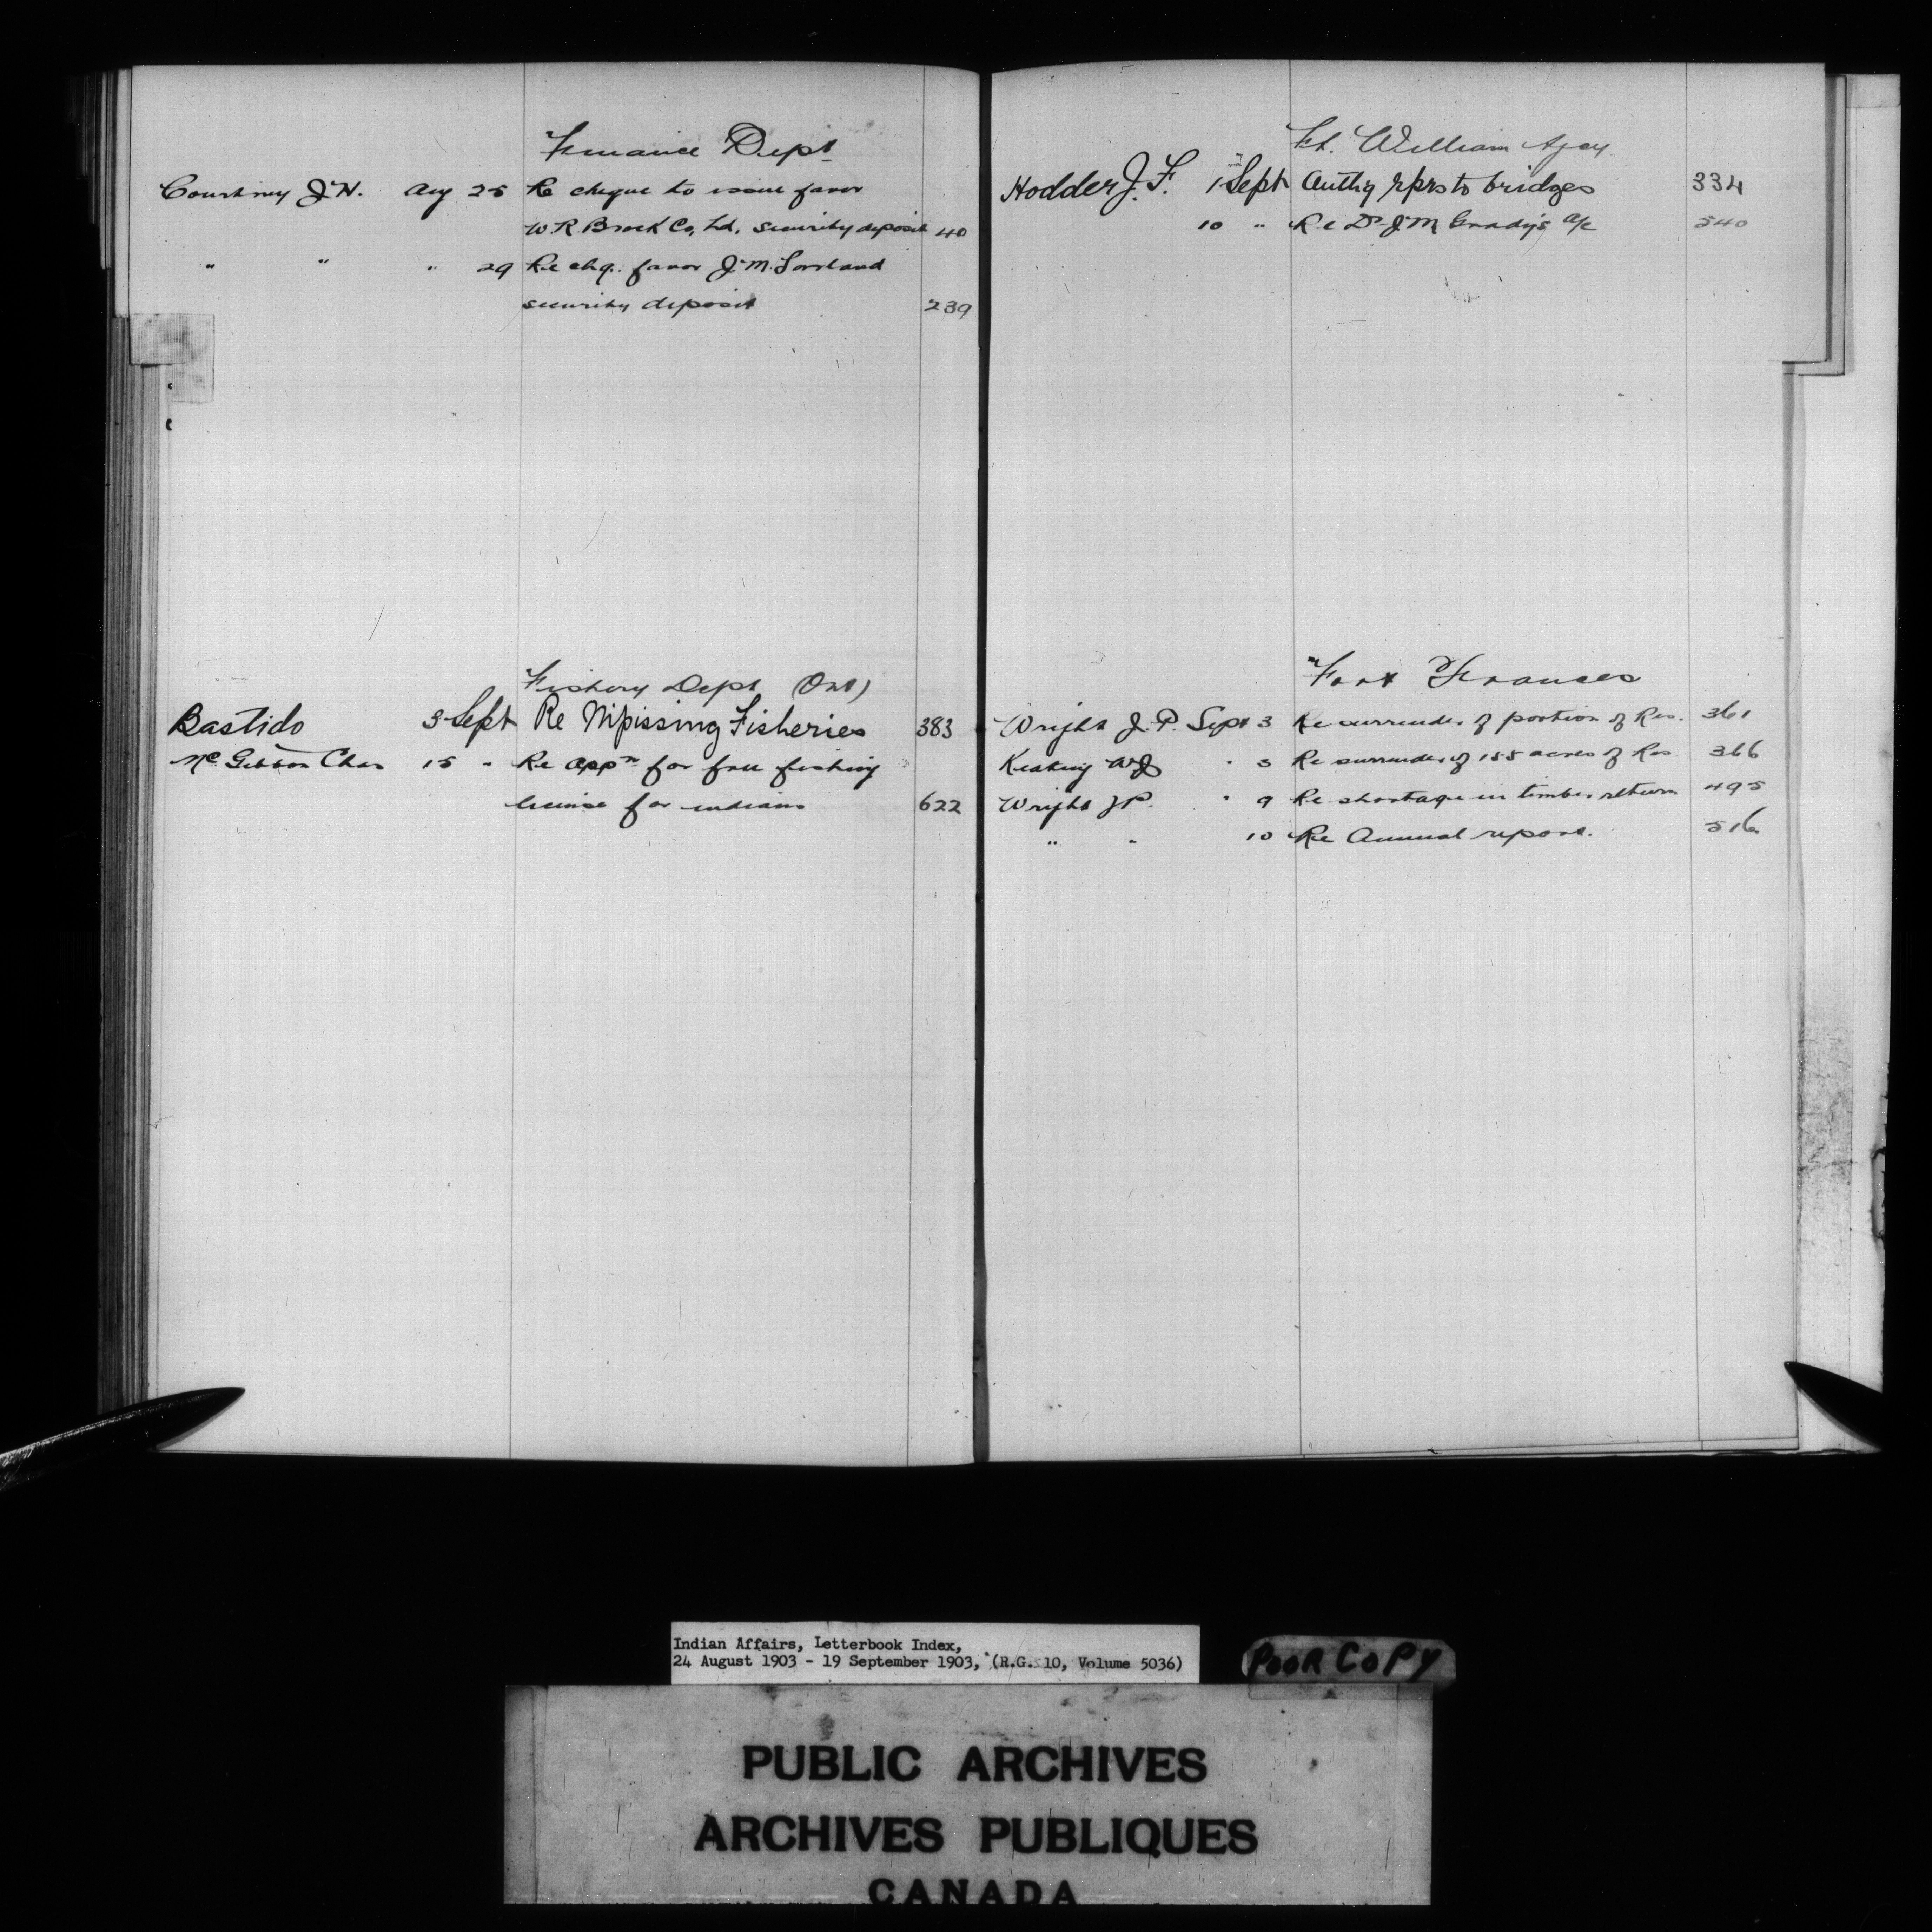 Finance Dept
Courtney J.M. Aug 25 Re cheque to issue favor
W.R. Brock Co, Ld, security deposit 40
" " " 29 Re chq. favor J.M.
security deposit 239
Fishery Dept (Ont)
Bastido 3 Sept Re Nipissing Fisheries 383
McGibbon Chas 15 " Re appn for free fishing
license for indians 622
Ft. William Agcy
Hodder J.F. 1 Sept Authg rprs to bridges 334
10 " Re Dr J M Grady's a/c 540
Fort Frances
Wright J.P. Sept 3 Re surrender of portion of Res. 361
Keating WJ " 3 Re surrender of 155 acres of Res 366
Wright JP. " 9 Re shortage in timber return 495
" " 10 Re Annual report. 516
Indian Affairs, Letterbook Index,
24 August 1903 - 19 September 1903, (R.G. 10, Volume 5036)
POOR COPY
PUBLIC ARCHIVES
ARCHIVES PUBLIQUES
CANADA